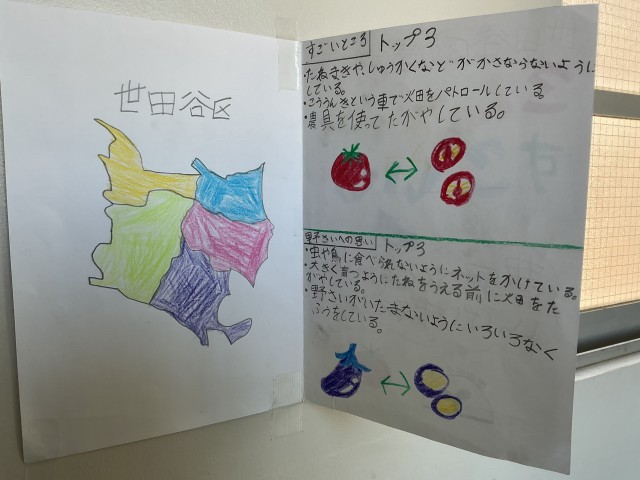 世田谷区
すごいところ トップ3
・たねまきや、しゅうかくなどがかさならないように
している。
・こううんきという車で畑をパトロールしている
・農具を使ってたがやしている。
野さいへの思い トップ3
・虫や鳥に食べられないようにネットをかけている。
・大きく育つようにたねをうえる前に畑をた
がやしている。
・野さいがいたまないようにいろいろなく
ふうをしている。